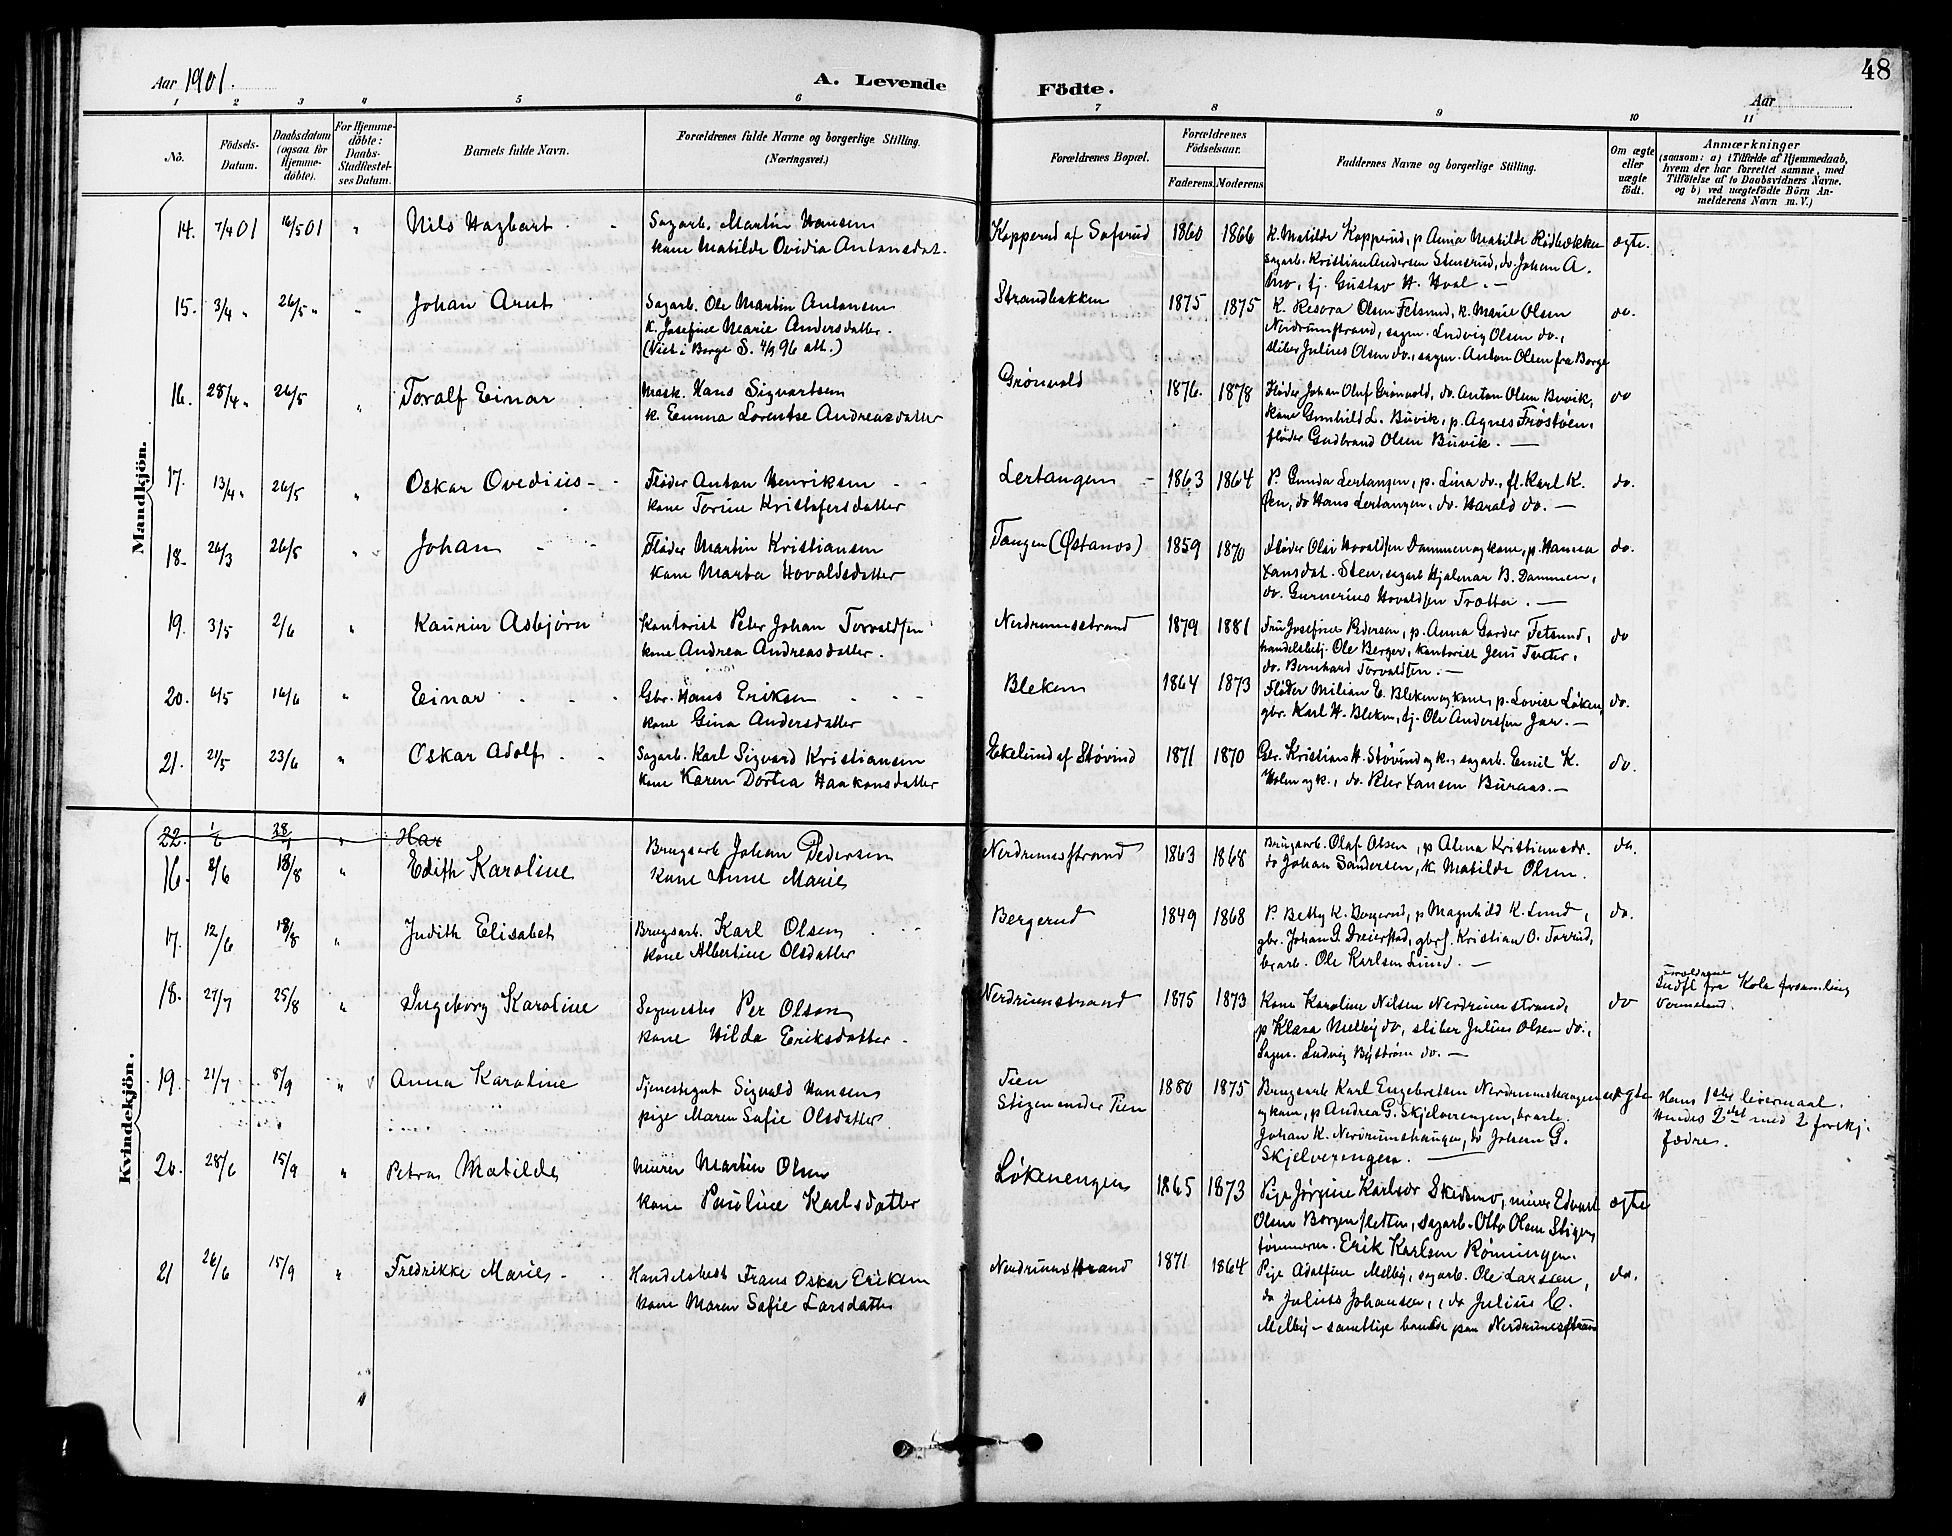 48
Aar 1901.
A. Levende Födte.
Aar
1 2 3 4 5 6 7 8 9 10 11
No.
Födsels-Datum.
Daabsdatum (ogsaa for Hjemme-döbte).
For Hjemme-döbte: Daabs-Stadfæstel-ses Datum.
Barnets fulde Navn.
Forældrenes fulde Navne og borgerlige Stilling. (Næringsvei.)
Forældrenes Bopæl.
Forældrenes Födselsaar.
Faderens. Moderens.
Faddernes Navne og borgerlige Stilling.
Om ægte eller uægte födt.
Anmærkninger
(saasom: a) i Tilfælde af Hjemmedaab, hvem der har forrettet samme, med Tilföielse af to Daabsvidners Navne. og b) ved uægtefödte Börn An-melderens Navn m. V.)
Mandkjön.
14. 7/4 01 16/5 01 " Nils Hagbart Sagarb. Martin Hansen Kopperud af Sofsrud 1860 1866 K. Matilde Kopperud, p Anna Matilde Rødbækken ægte.
kone Matilde Ovidia Antonsdat. sagarb. Kristian Andersen Stensrud, do. Johan A.
Mo, tj. Gustav H. Hval. —
15. 3/4 " 26/5 " " Johan Arnt Sagarb. Ole Martin Antonsen Strandbakken 1875 1875 K. Resora Olsen Fetsund, k. Marie Olsen do.
K. Josefine Marie Andersdatter. Nerdrumstrand, sagm. Ludvig Olsen do.,
(Viet i Borge S. 4/9 96 att.) sliber Julius Olsen do., sagm. Anton Olsen fra Borge
16. 28/4 " 26/5 " Toralf Einar Mask. Hans Sigvartsen Grønvold 1876. 1878 Fløder Johan Oluf Grønvold, do. Anton Olsen Buvik, do
k. Emma Lorentse Andreasdatter kone Gunhild L. Buvik, p. Agnes Frøstøen,
fløder Gudbrand Olsen Buvik. —
17. 13/4 " 26/5 " Oskar Ovedius Fløder Anton Henriksen Lertangen 1863 1864 P. Gunda Lertangen, p. Lina do., fl. Karl K. do.
kone Torine Kristofersdatter Øen, do Hans Lertangen, do. Harald do. —
18. 26/3 26/5 " Johan Fløder Martin Kristiansen Tangen (Østanos) 1859 1870 Fløder Olai Hovaldsen Dammen og kone, p. Hanna do.
kone Marta Hovaldsdatter Hansdat. Sten, sagarb Hjalmar B. Dammen,
do. Gunnerius Hovaldsen Tratten. —
19. 3/5 2/6 " Kaurin Asbjørn Kontorist Peter Johan Torvaldsen Nerdrumsstrand 1879 1881 Fru Josefine Pedersen, p. Anna Garder Fetsund, do
kone Andrea Andreasdatter. handelsbetj. Ole Berger, kontorist Jens Tæter,
do. Bernhard Torvaldsen. —
20. 6/5 16/6 " Einar Gbr. Hans Eriksen Bleken 1864 1873 Fløder Milian E. Bleken og kone, p. Lovise Løken, do.
kone Gina Andersdatter gbr. Karl H. Bleken, tj. Ole Andersen Jar. —
21. 21/5 23/6 " Oskar Adolf Sagarb. Karl Sigvard Kristiansen Ekelund af Støvind 1871 1870 Gbr. Kristian H. Støvind og k., sagarb. Emil K. do.
kone Karen Dortea Haakonsdatter Holm og k., do. Peter Hansen Buraas. —
Kvindekjön.
22. 28 " Har
16. 8/6 18/8 " Edith Karoline Brugsarb Johan Pedersen Nerdrumsstrand 1863 1868 Brugsarb. Olaf Olsen, p Alma Kristiansdr. do.
kone Anne Marie do Johan Sandersen, k. Matilde Olsen.
17. 12/6 18/8 " Judith Elisabet Brugsarb. Karl Olsen Bergerud 1849 1868 P. Betty K. Bergerud, p Magnhild K. Lund, do.
kone Albertine Olsdatter gbr. Johan G. Dreierstad, gbrs. Kristian O. Torrud,
br.arb. Ole Karlsen Lund. —
18. 27/7 25/8 " Ingeborg Karoline Sagmester Per Olson Nerdrumstrand 1875 1873 Kone Karoline Nilsen Nerdrumstrand, do Forældrene Indfl. fra Kola forsamling
kone Hilda Eriksdatter. p Klara Melby do, sliber Julius Olsen do., Vermeland.
Sagm. Ludvig Byström do. —
19. 21/7 8/9 " Anna Karoline Tjenestegut Sigvald Hansen Tien 1880 1875 Brugsarb Karl Engebretsen Nerdrumshaugen uægte Hans 1ste leiermaal.
pige Maren Sofie Olsdatter Stigen under Tien og kone, p Andrea G. Skjelverengen, br.arb. Hendes 2det med 2 forskj.
Johan K. Nerdrumshaugen, do Johan G. fædre.
Skjelverengen. —
20. 28/6 15/9 " Petra Matilde Murer Martin Olsen Løkenengen 1865 1873 Pige Jørgine Karlsdr Skedsmo, murer Edvart ægte
kone Pauline Karlsdatter Olsen Borgensletten, sagarb. Otto Olsen Stigen,
tømmerm. Erik Karlsen Rønningen.
21 26/6 15/9 " Fredrikke Marie Handelsbest Frans Oskar Eriksen Nerdrumsstrand 1871 1864 Pige Adolfine Melby, sagarb. Ole Larssen, do.
kone Maren Sofie Larsdatter do Julius Johansen, do Julius C.
Melby — samtlige boende paa Nerdrumsstrand